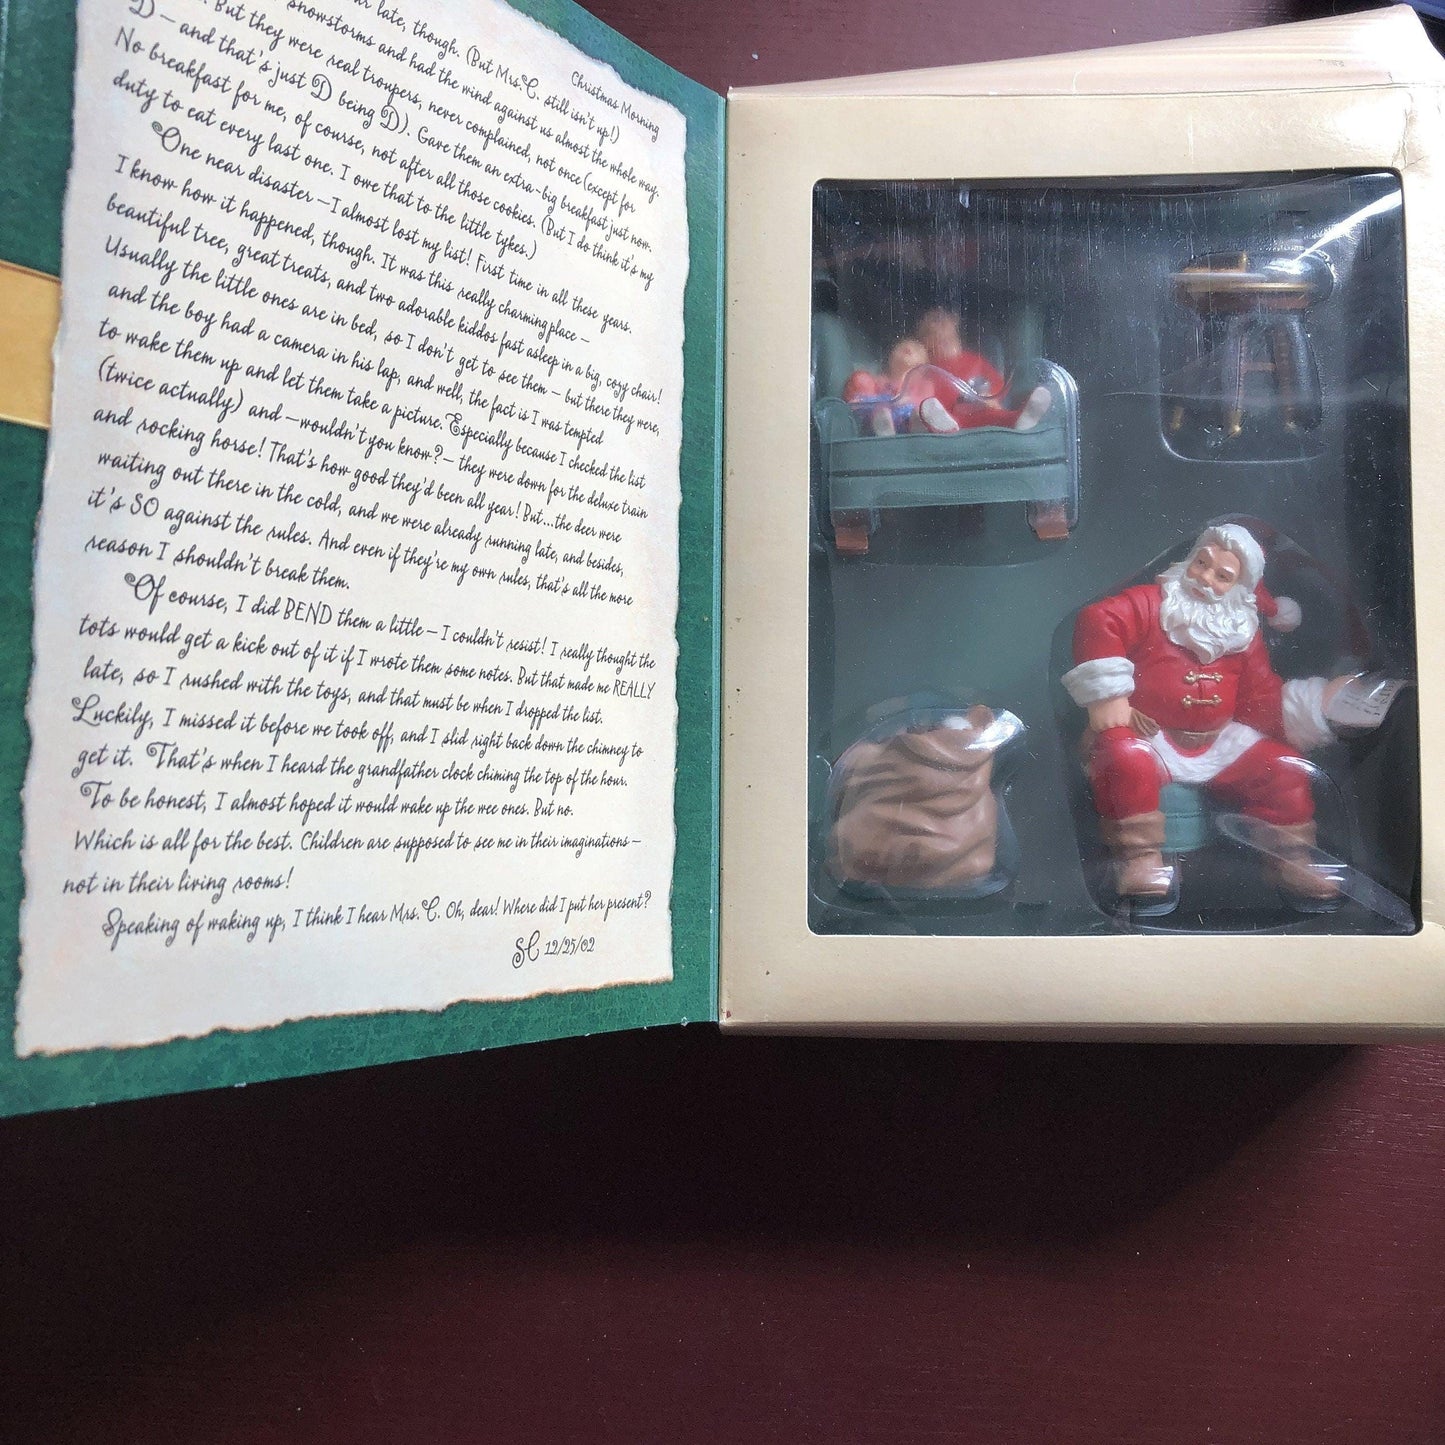 Christmas Morning
late, though. (But Mrs. C. still isn't up!)
snowstorms and had the wind against us almost the whole way.
But they were real troupers, never complained, not once (except for
D – and that's just D being D). Gave them an extra-big breakfast just now.
No breakfast for me, of course, not after all those cookies. (But I do think it's my
duty to eat every last one. I owe that to the little tykes.)
One near disaster – I almost lost my list! First time in all these years.
I know how it happened, though. It was this really charming place –
beautiful tree, great treats, and two adorable kiddos fast asleep in a big, cozy chair!
Usually the little ones are in bed, so I don't get to see them – but there they were,
and the boy had a camera in his lap, and well, the fact is I was tempted
to wake them up and let them take a picture. Especially because I checked the list
(twice actually) and – wouldn't you know? – they were down for the deluxe train
and rocking horse! That's how good they'd been all year! But...the deer were
waiting out there in the cold, and we were already running late, and besides,
it's SO against the rules. And even if they're my own rules, that's all the more
reason I shouldn't break them.
Of course, I did BEND them a little – I couldn't resist! I really thought the
tots would get a kick out of it if I wrote them some notes. But that made me REALLY
late, so I rushed with the toys, and that must be when I dropped the list.
Luckily, I missed it before we took off, and I slid right back down the chimney to
get it. That's when I heard the grandfather clock chiming the top of the hour.
To be honest, I almost hoped it would wake up the wee ones. But no.
Which is all for the best. Children are supposed to see me in their imaginations –
not in their living rooms!
Speaking of waking up, I think I hear Mrs. C. Oh, dear! Where did I put her present?
SC 12/25/02